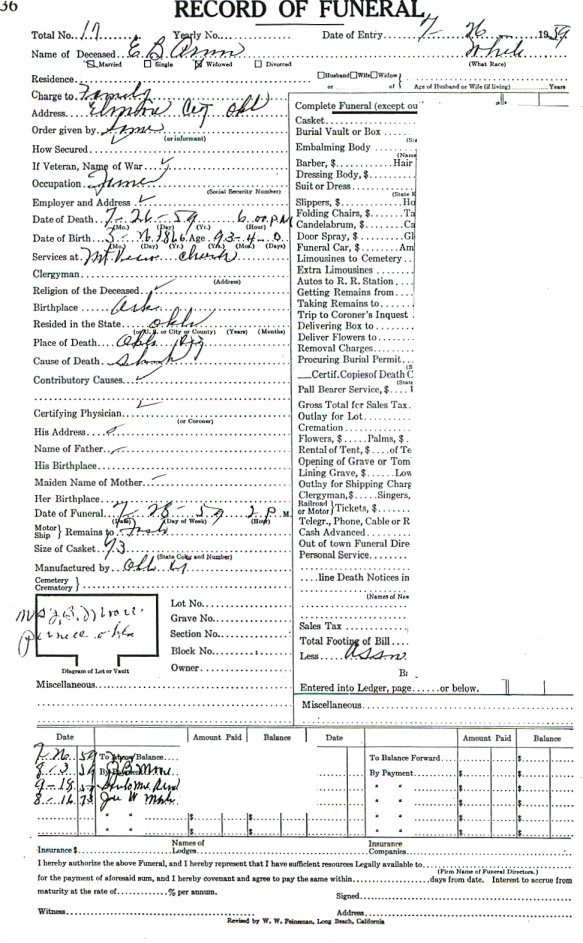 36
RECORD OF FUNERAL
Total No. 17 Yearly No. Date of Entry 7- 26 1959
Name of Deceased E. B. White
Married Single Widowed Divorced (What Race)
Residence Husband Wife Widow
or of Age of Husband or Wife (if living) Years
Charge to Family
Address City Okl
Order given by Same
(or informant)
How Secured
If Veteran, Name of War
Occupation
(Social Security Number)
Employer and Address
Date of Death 7-26-59 6:00 P.M.
(Mo.) (Day) (Yr.) (Hour)
Date of Birth 3- 26 1866 Age 93-4-0
(Mo.) (Day) (Yr.) (Yrs.) (Mo.) (Days)
Services at Mt View Church
(Address)
Clergyman
Religion of the Deceased
Birthplace Ark
Resided in the State Okla
(or U. S. or City or County) (Years) (Months)
Place of Death Okla City
Cause of Death
Contributory Causes
Certifying Physician
(or Coroner)
His Address
Name of Father
His Birthplace
Maiden Name of Mother
Her Birthplace
Date of Funeral 7-28-59 2 P.M.
(Date) (Day of Week) (Hour)
Motor
Ship } Remains to
Size of Casket
(State Color and Number)
Manufactured by
Cemetery
Crematory }
Okla
Diagram of Lot or Vault
Lot No.
Grave No.
Section No.
Block No.
Owner
Miscellaneous
Complete Funeral (except ou
Casket
Burial Vault or Box
Embalming Body
(Name
Barber, $ Hair
Dressing Body, $
Suit or Dress
(State K
Slippers, $ Ho
Folding Chairs, $ Ta
Candelabrum, $ Ca
Door Spray, $ Gl
Funeral Car, $ Am
Limousines to Cemetery
Extra Limousines
Autos to R. R. Station
Getting Remains from
Taking Remains to
Trip to Coroner's Inquest
Delivering Box to
Deliver Flowers to
Removal Charges
Procuring Burial Permit
Certif. Copies of Death C
(State
Pall Bearer Service, $
Gross Total for Sales Tax
Outlay for Lot
Cremation
Flowers, $ Palms, $
Rental of Tent, $ of Te
Opening of Grave or Tom
Lining Grave, $ Low
Outlay for Shipping Charg
Clergyman, $ Singers,
Railroad
or Motor } Tickets, $
Telegr., Phone, Cable or R
Cash Advanced
Out of town Funeral Dire
Personal Service
line Death Notices in
(Names of New
Sales Tax
Total Footing of Bill
Less Assn
Ba
Entered into Ledger, page or below.
Miscellaneous
Date Amount Paid Balance Date Amount Paid Balance
To Above Balance $ To Balance Forward $
By Payment $ By Payment $
9-18-59
8-16-73 Joe W
" " $ $ " " $
Insurance $ Names of Lodges Insurance Companies
I hereby authorize the above Funeral, and I hereby represent that I have sufficient resources Legally available to
(Firm Name of Funeral Directors.)
for the payment of aforesaid sum, and I hereby covenant and agree to pay the same within days from date. Interest to accrue from
maturity at the rate of % per annum.
Signed
Witness Address
Revised by W. W. Feineman, Long Beach, California